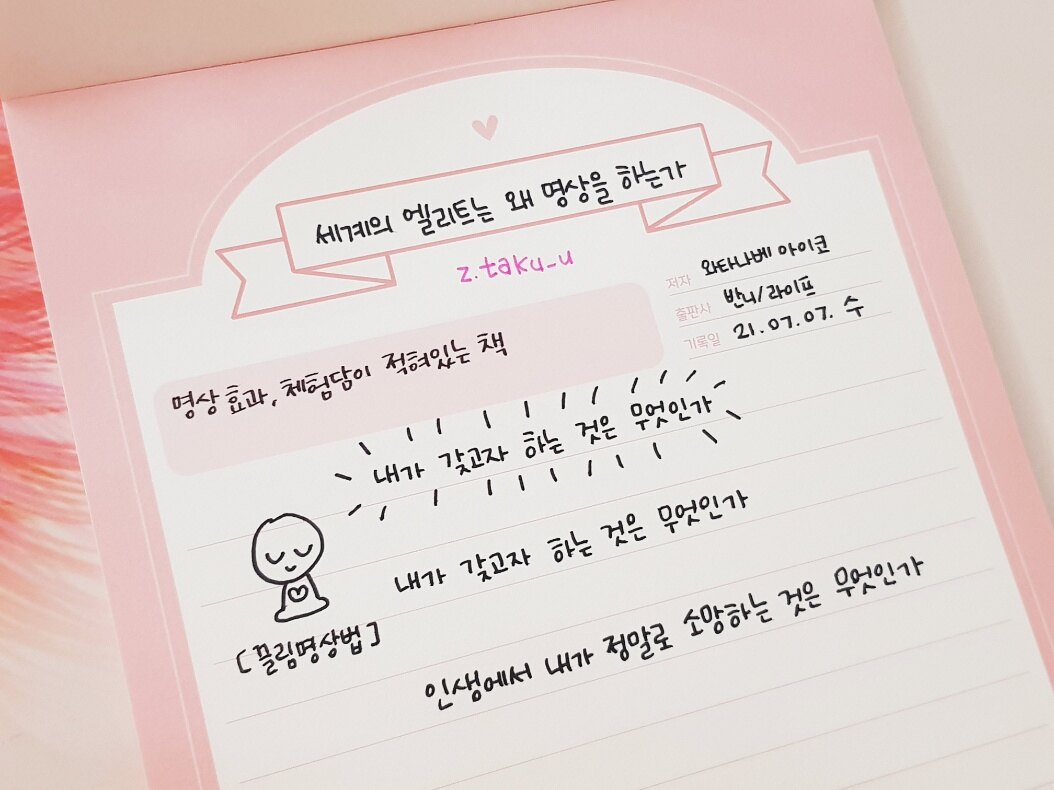 세계의 엘리트는 왜 명상을 하는가
z.taku_u
저자 와타나베 아이코
출판사 반니/라이프
기록일 21.07.07. 수
명상 효과, 체험담이 적혀있는 책
내가 갖고자 하는 것은 무엇인가
내가 갖고자 하는 것은 무엇인가
[끌림명상법]
인생에서 내가 정말로 소망하는 것은 무엇인가